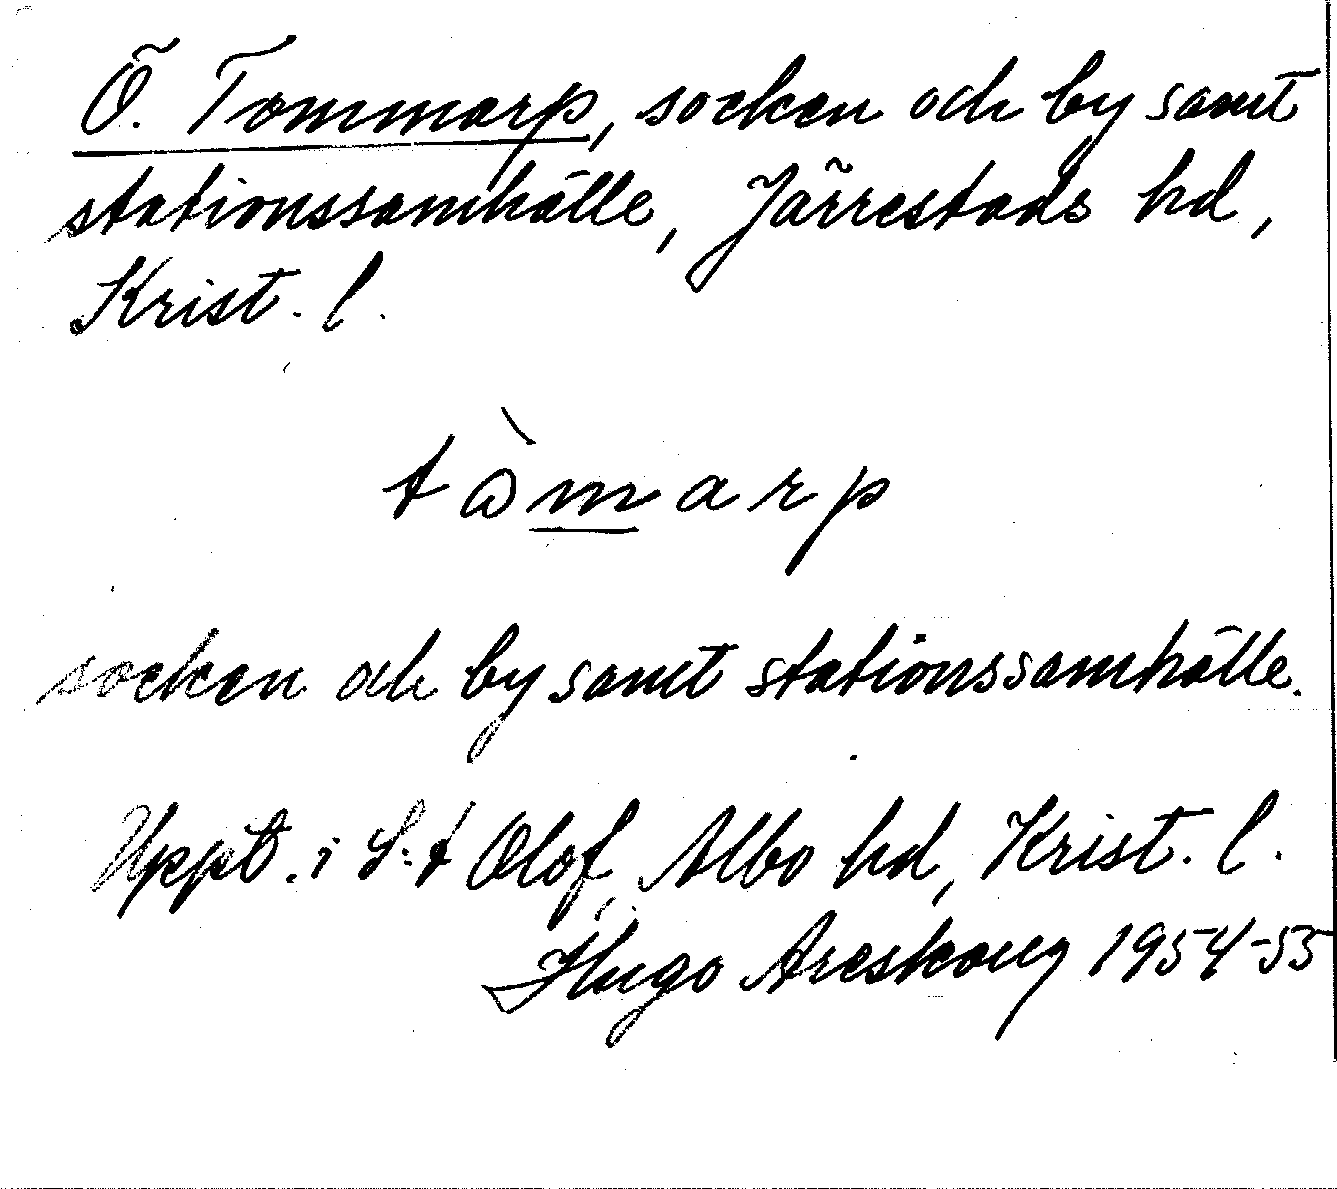 Ö. Tommarp, socken och by samt
stationssamhälle, Järrestads hd,
Krist. l.
tòmarp
socken och by samt stationssamhälle.
Uppt. i S:t Olof, Albo hd, Krist. l.
Hugo Areskoug 1954-55